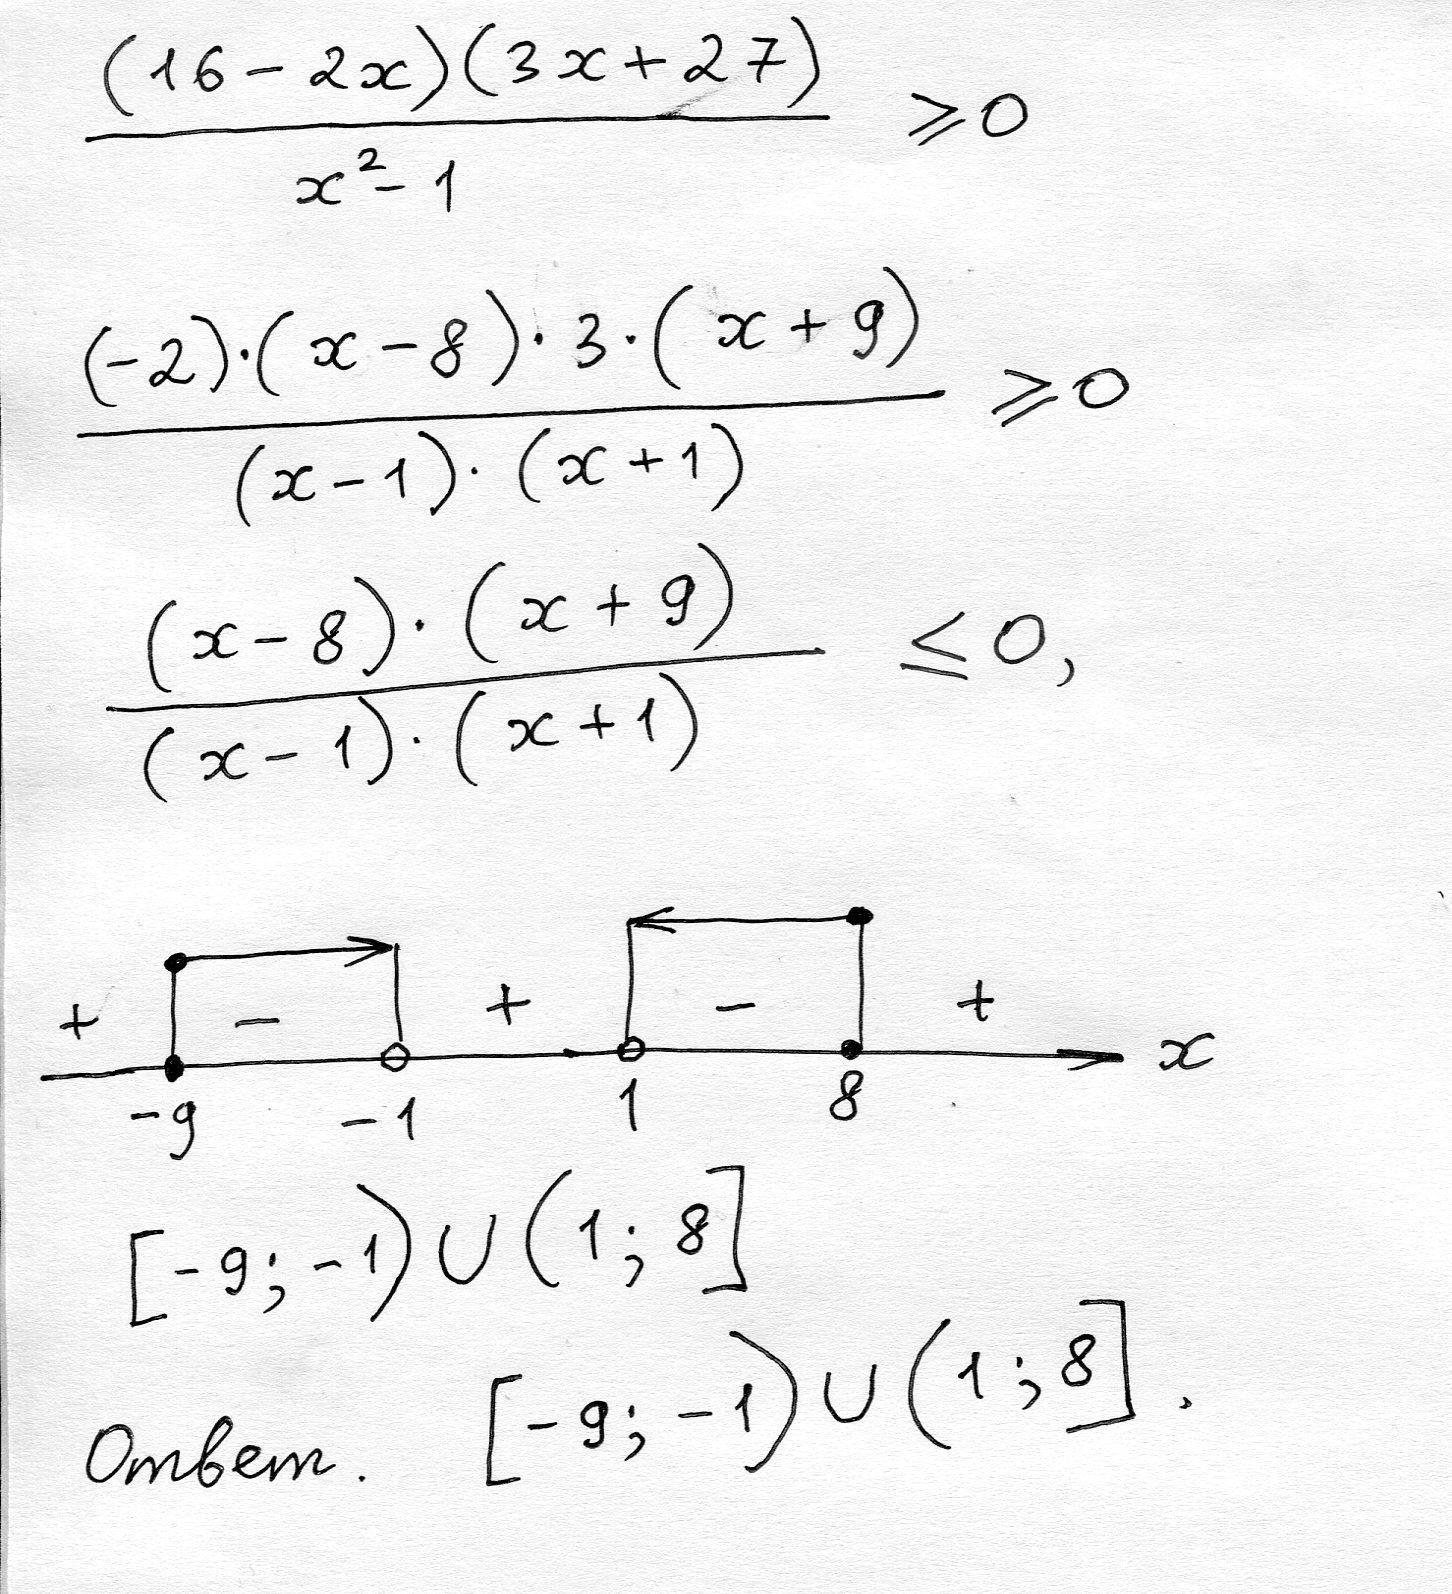 (16-2x)(3x+27)
x²-1
≥0
(-2)·(x-8)·3·(x+9)
(x-1)·(x+1)
≥0
(x-8)·(x+9)
(x-1)·(x+1)
≤0,
+ - + - +
-9 -1 1 8 x
[-9;-1)∪(1;8]
Ответ. [-9;-1)∪(1;8].